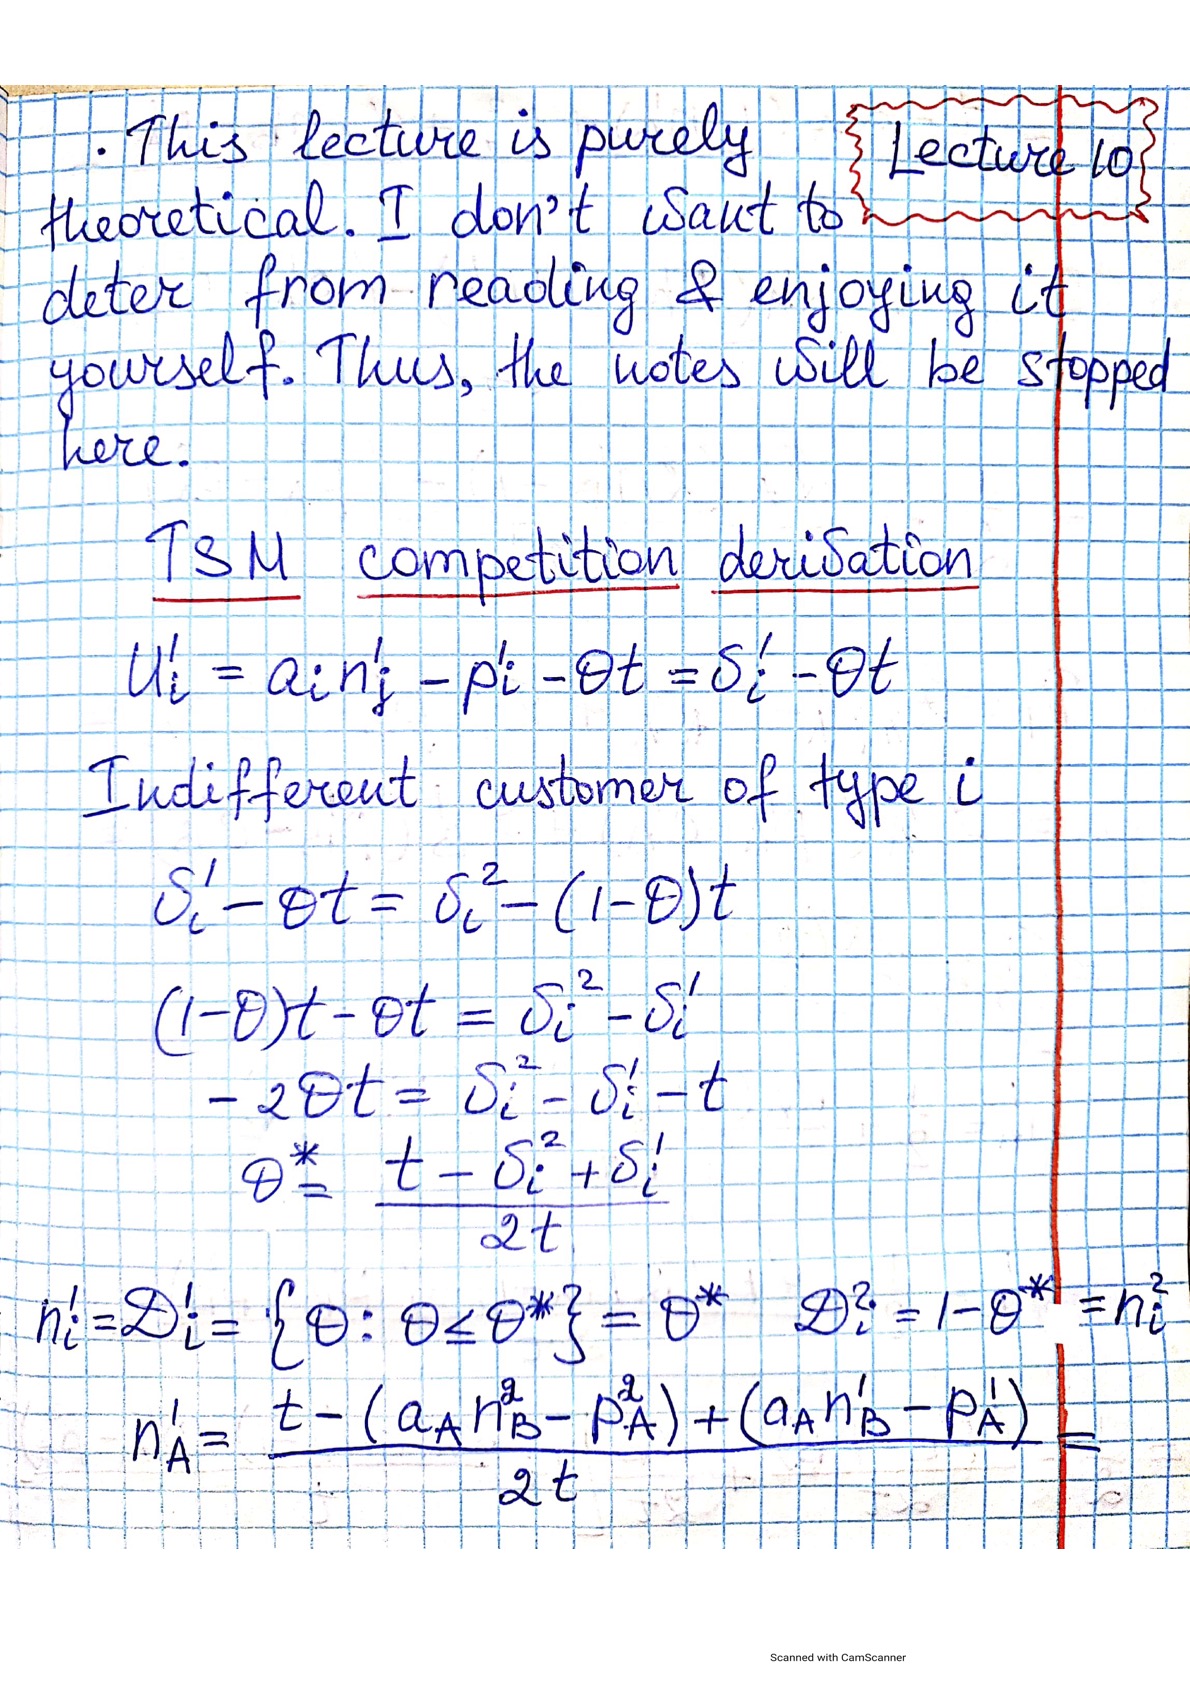 . This lecture is purely
Lecture 10
theoretical. I don't want to
deter from reading & enjoying it
yourself. Thus, the notes will be stopped
here.
TSM competition derivation
U_i^1 = a_i n_j^1 - p_i^1 - θt = δ_i^1 - θt
Indifferent customer of type i
δ_i^1 - θt = δ_i^2 - (1-θ)t
(1-θ)t - θt = δ_i^2 - δ_i^1
- 2θt = δ_i^2 - δ_i^1 - t
θ* = (t - δ_i^2 + δ_i^1) / 2t
n_i^1 = D_i^1 = {θ: θ ≤ θ*} = θ* D_i^2 = 1 - θ* = n_i^2
n_A^1 = (t - (a_A n_B^2 - p_A^2) + (a_A n_B^1 - p_A^1)) / 2t =
Scanned with CamScanner